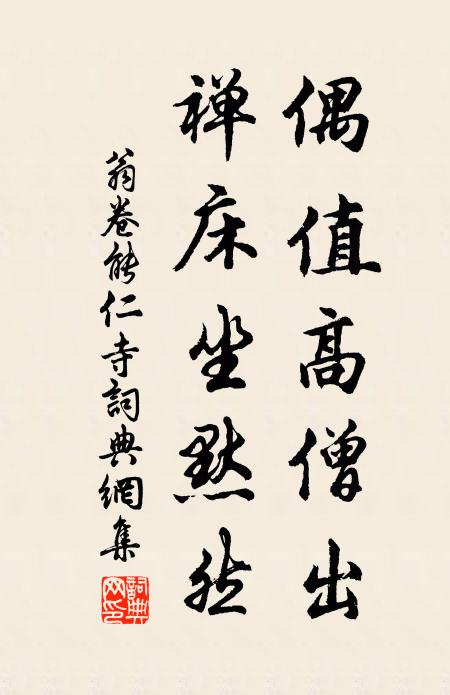 偶值高僧出
禅床坐默然
翁卷能仁寺詞典網集
詞典網印